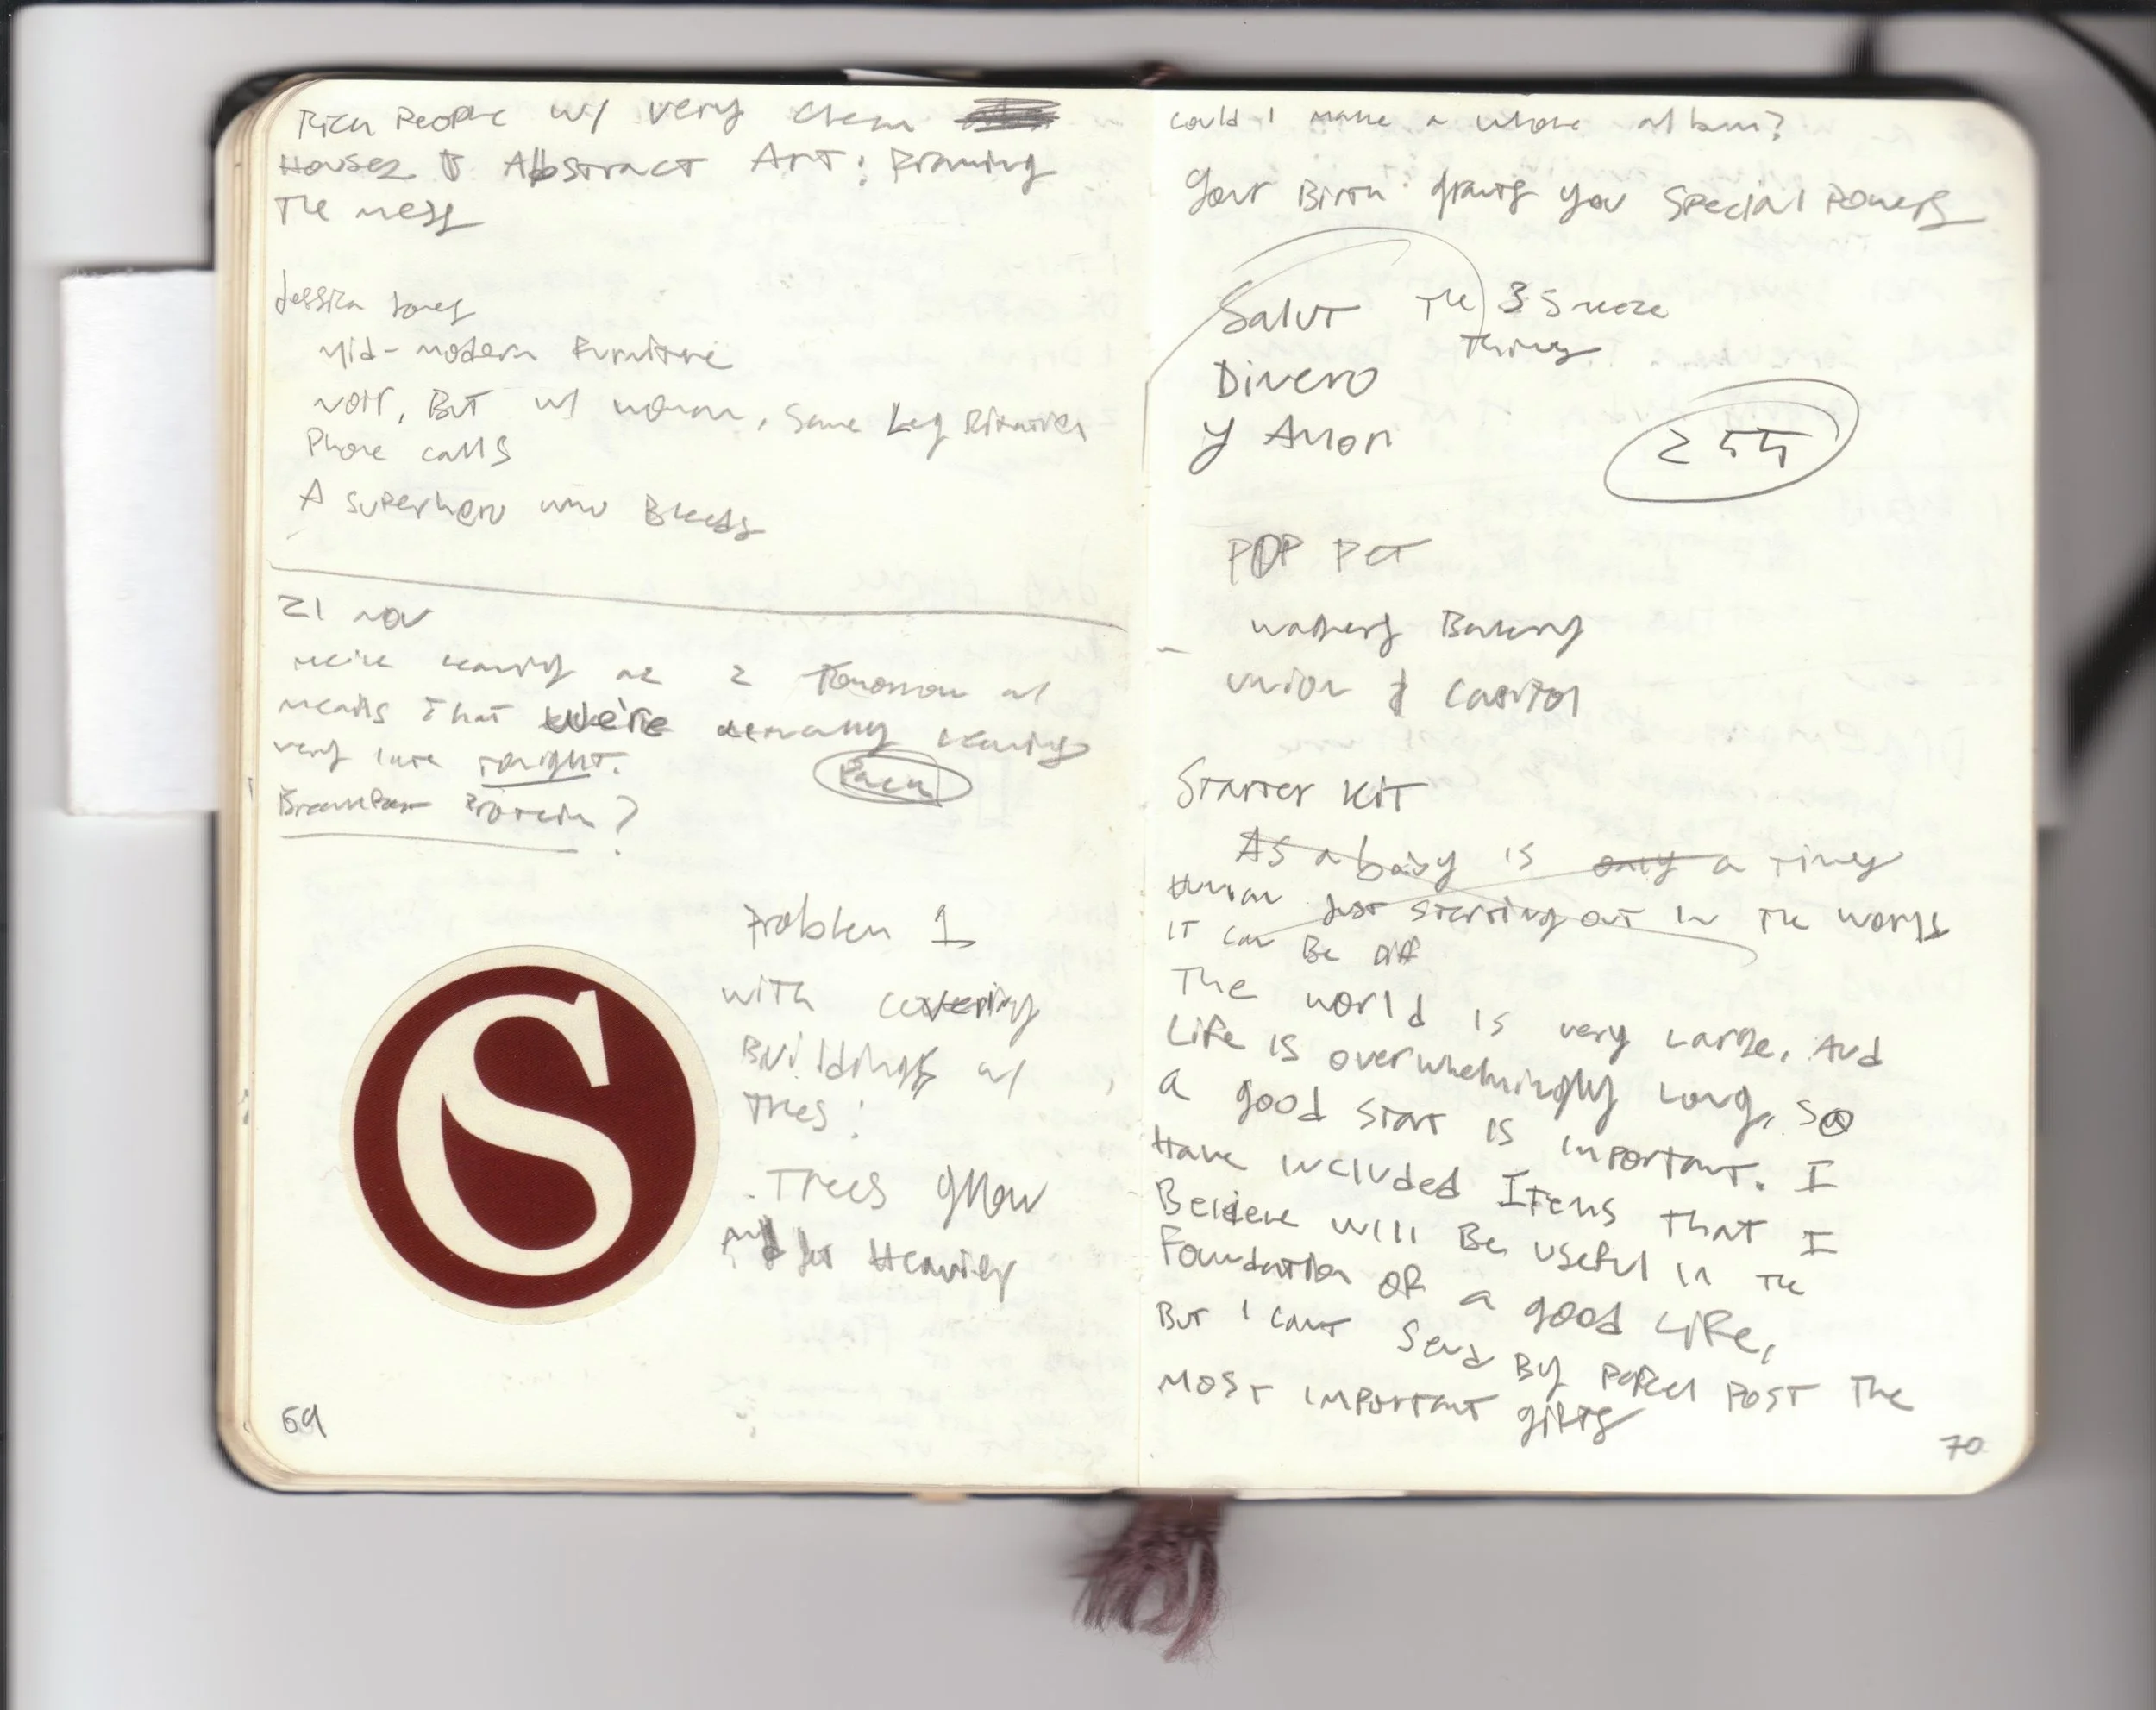 Rich People w/ very clean
Houses & Abstract Art: Framing
The mess
Jessica Jones
Mid-modern Furniture
Noir, But w/ woman, Same Leg
Phone calls
A superhero who Bleeds
21 Nov
leaving at 2 Tomorrow
means That we're actually leaving
very late tonight.
Pack
Breakfast Protein?
Problem 1
with covering
Buildings w/
Trees:
S
. Trees grow
Heavily
69
Could I make a whole album?
Your Birth grants you Special Powers
Salut The 3 Sneeze
Thing
Dinero
Y Amor
255
POP PET
Bakery
Union & Capitol
Starter Kit
As a baby is only a Tiny
Human Just starting out in The World
IT can Be Diff
The world is very Large, And
Life is overwhelmingly Long, So
a good start is important. I
Have included Items that I
Believe will Be useful in the
Foundation OF a good Life,
But I can't Send By Parcel Post The
Most Important gifts
70